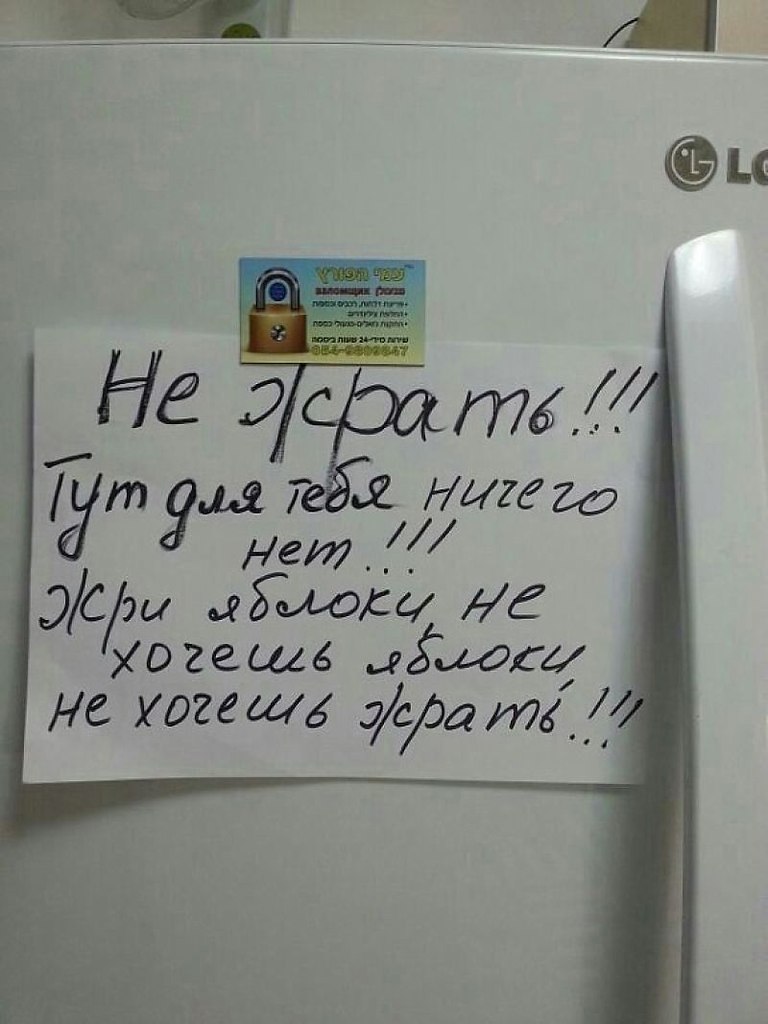 LG
взломщик
054-9809847
Не жрать!!!
Тут для тебя ничего
нет!!!
Жри яблоки, не
хочешь яблоки,
не хочешь жрать!!!